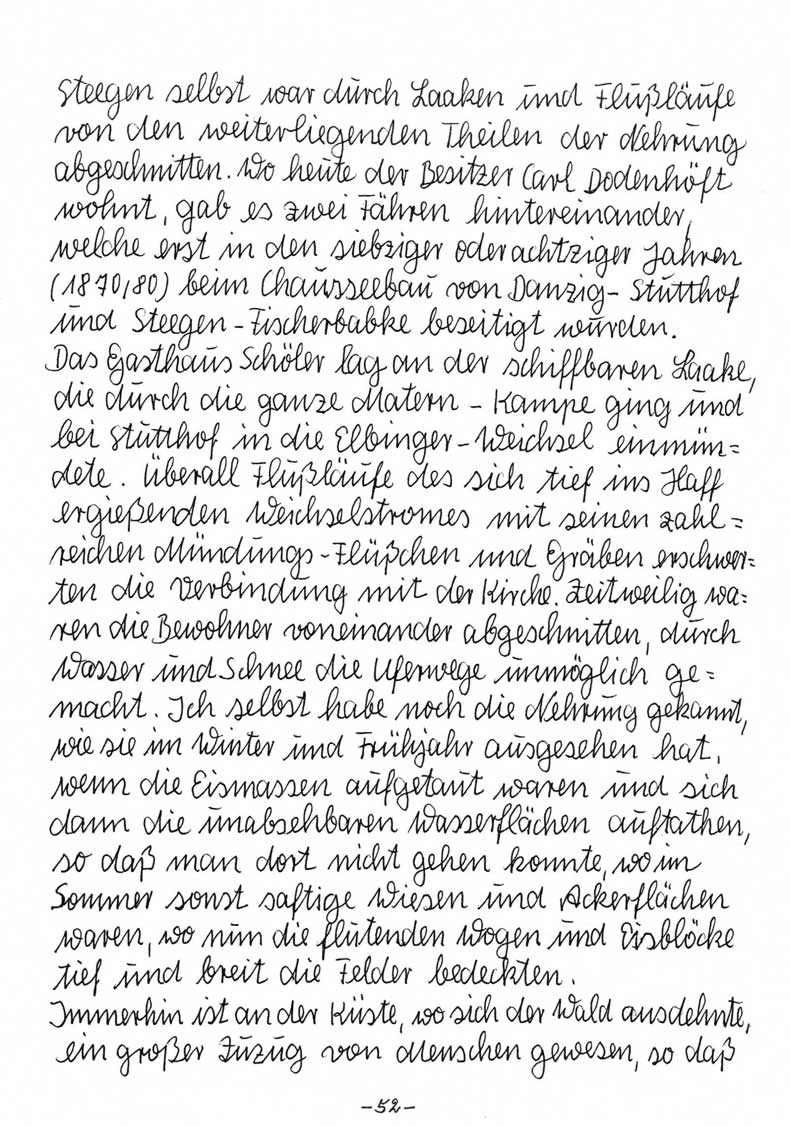 Steegen selbst war durch Laaken und Flußläufe
von den weiterliegenden Theilen der Nehrung
abgeschnitten. Wo heute der Besitzer Carl Dodenhöft
wohnt, gab es zwei Fähren hintereinander,
welche erst in den siebziger oder achtziger Jahren
(1870/80) beim Chausseebau von Danzig-Stutthof
und Steegen-Fischerbabke beseitigt wurden.
Das Gasthaus Schöler lag an der schiffbaren Laake,
die durch die ganze Matern-Kampe ging und
bei Stutthof in die Elbinger-Weichsel einmün=
dete. Überall Flußläufe des sich tief ins Haff
ergießenden Weichselstromes mit seinen zahl=
reichen Mündungs-Flüßchen und Gräben erschwer=
ten die Verbindung mit der Kirche. Zeitweilig wa=
ren die Bewohner voneinander abgeschnitten, durch
Wasser und Schnee die Uferwege unmöglich ge=
macht. Ich selbst habe noch die Nehrung gekannt,
wie sie im Winter und Frühjahr ausgesehen hat,
wenn die Eismassen aufgetaut waren und sich
dann die unabsehbaren Wasserflächen auftathen,
so daß man dort nicht gehen konnte, wo im
Sommer sonst saftige Wiesen und Ackerflächen
waren, wo nun die flutenden Wogen und Eisblöcke
tief und breit die Felder bedeckten.
Immerhin ist an der Küste, wo sich der Wald ausdehnte,
ein großer Zuzug von Menschen gewesen, so daß
-52-